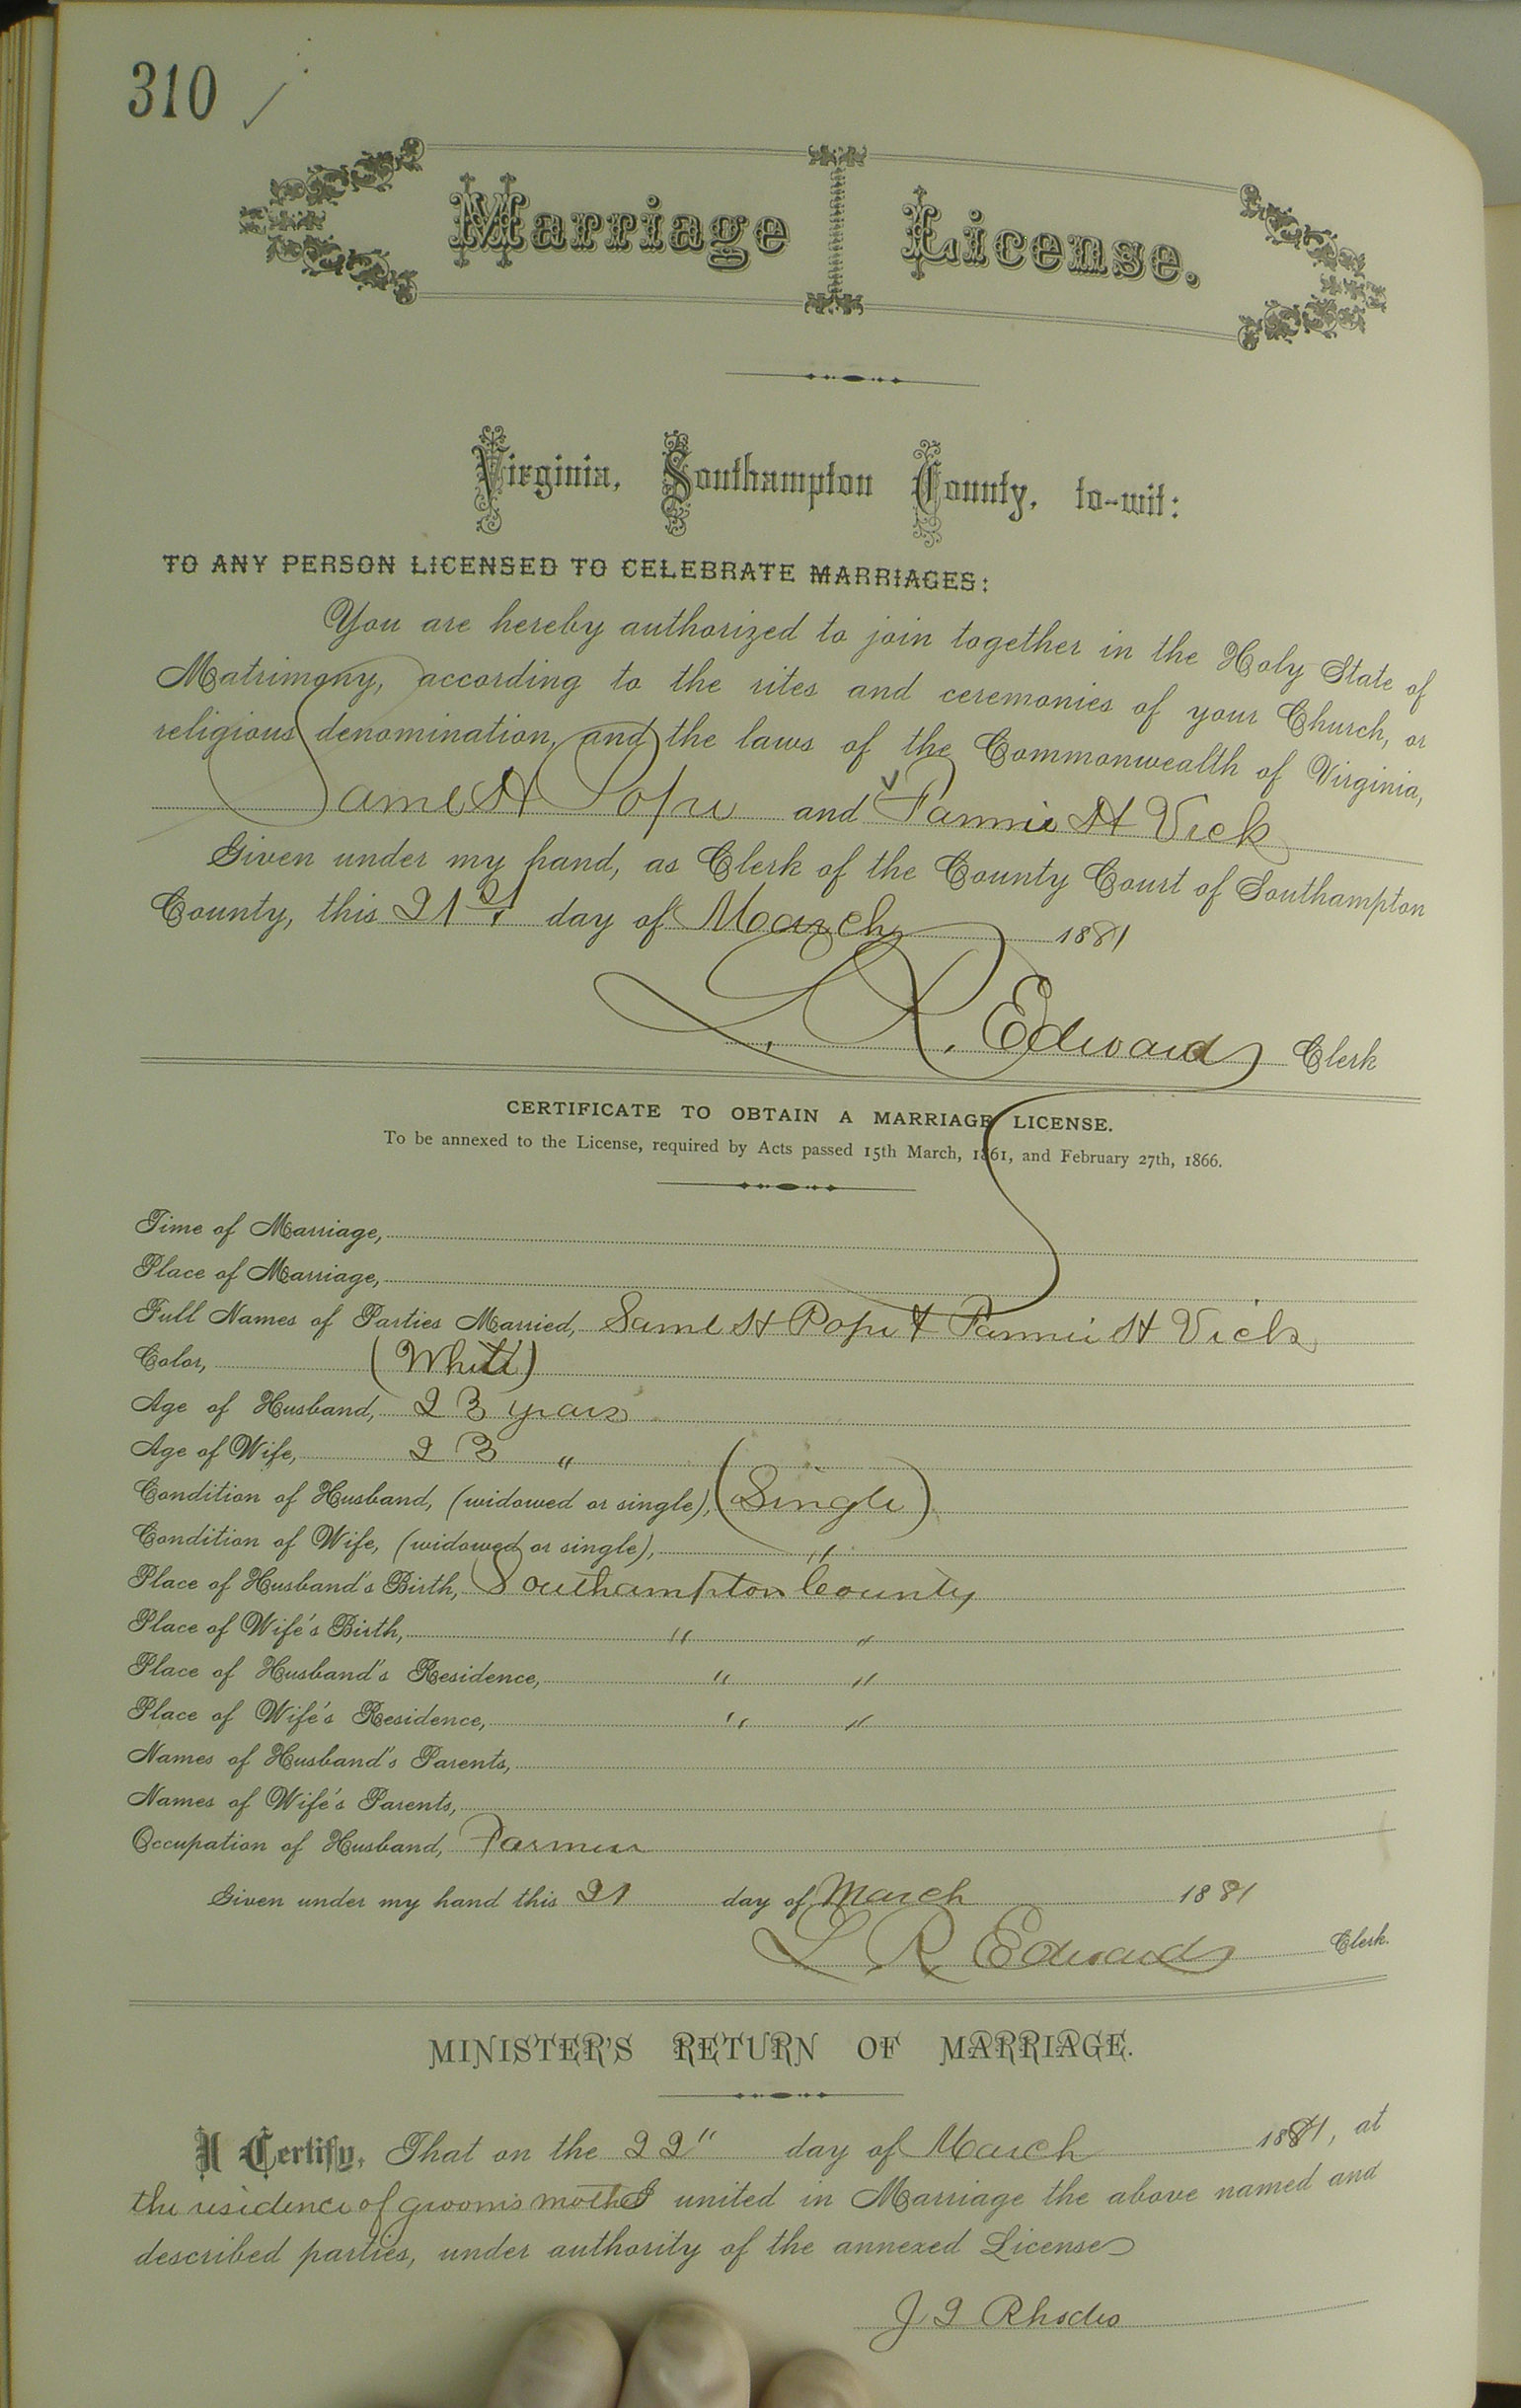 310
Marriage License.
Virginia, Southampton County, to-wit:
TO ANY PERSON LICENSED TO CELEBRATE MARRIAGES:
You are hereby authorized to join together in the Holy State of
Matrimony, according to the rites and ceremonies of your Church, or
religious denomination, and the laws of the Commonwealth of Virginia,
Saml H Pope and Fannie H Vick
Given under my hand, as Clerk of the County Court of Southampton
County, this 21st day of March 1881
L. R. Edwards Clerk
CERTIFICATE TO OBTAIN A MARRIAGE LICENSE.
To be annexed to the License, required by Acts passed 15th March, 1861, and February 27th, 1866.
Time of Marriage,
Place of Marriage,
Full Names of Parties Married, Saml H Pope & Fannie H Vick
Color, (White)
Age of Husband, 23 years
Age of Wife, 23 "
Condition of Husband, (widowed or single), (Single)
Condition of Wife, (widowed or single), "
Place of Husband's Birth, Southampton County
Place of Wife's Birth, " "
Place of Husband's Residence, " "
Place of Wife's Residence, " "
Names of Husband's Parents,
Names of Wife's Parents,
Occupation of Husband, Farmer
Given under my hand this 21 day of March 1881
L. R. Edwards Clerk.
MINISTER'S RETURN OF MARRIAGE.
I Certify, That on the 22" day of March 1881, at
the residence of groom's mother I united in Marriage the above named and
described parties, under authority of the annexed License
Rhodes